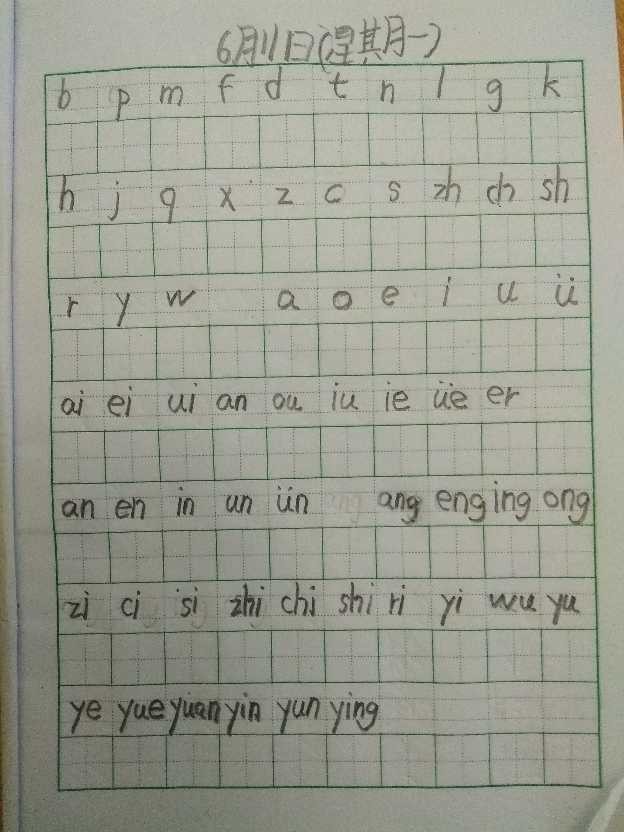 6月11日(湦其月一)
b p m f d t n l g k
h j q x z c s zh ch sh
r y w a o e i u ü
ai ei ui an ou iu ie üe er
an en in un ün ang eng ing ong
zi ci si zhi chi shi ri yi wu yu
ye yue yuan yin yun ying